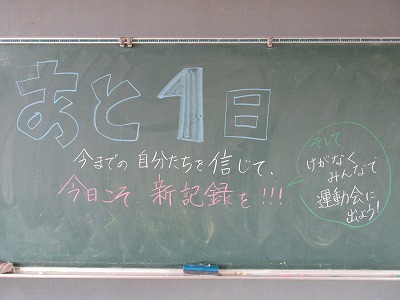 あと1日
今までの自分たちを信じて、
今日こそ新記録を!!!
そして
けがなく、
みんなで
運動会に
出よう!